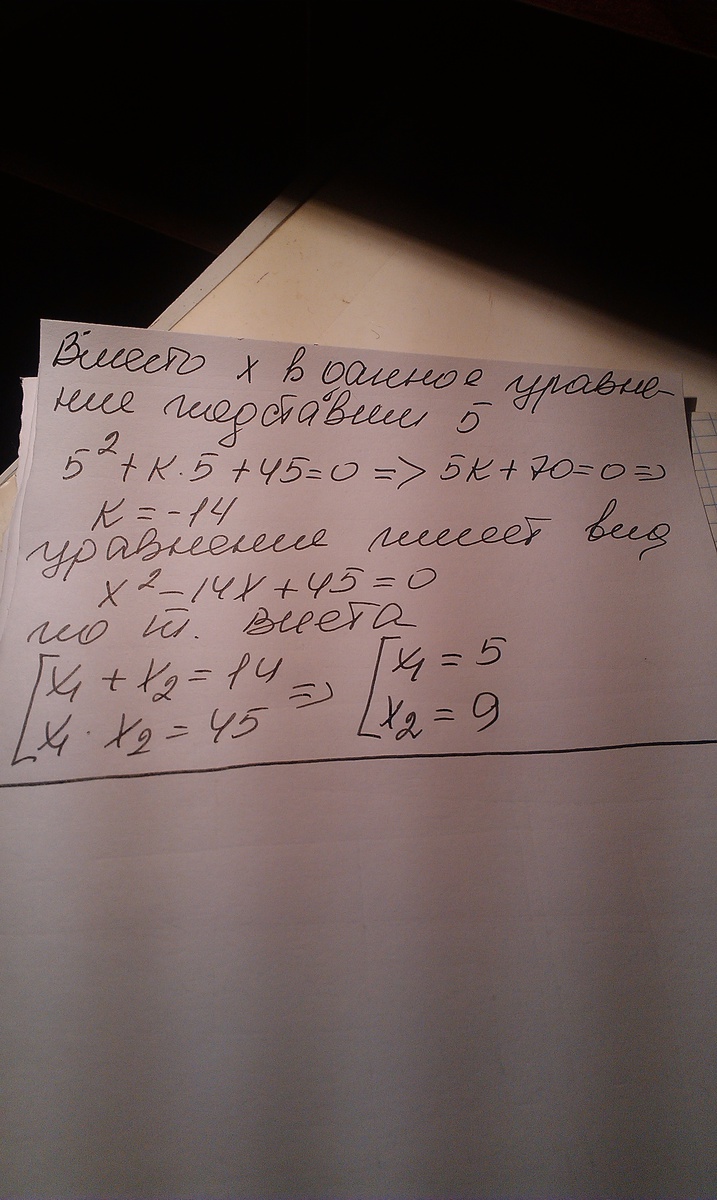 Вместо x в данное уравне-
ние подставим 5
5² + к·5 + 45 = 0 => 5к + 70 = 0 =>
к = -14
уравнение имеет вид
x² - 14x + 45 = 0
по т. Виета
[x₁ + x₂ = 14 => [x₁ = 5
[x₁ · x₂ = 45 [x₂ = 9